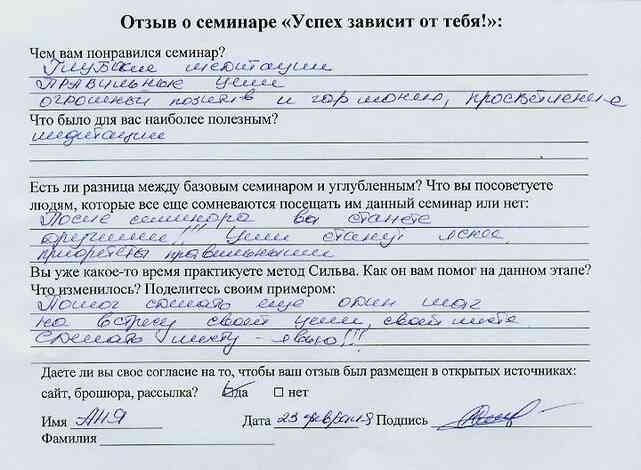 Отзыв о семинаре «Успех зависит от тебя!»:
Чем вам понравился семинар?
Глубокие медитации
Правильные цели
огромный позитив и гармонию, просветление
Что было для вас наиболее полезным?
медитации
Есть ли разница между базовым семинаром и углубленным? Что вы посоветуете
людям, которые все еще сомневаются посещать им данный семинар или нет:
После семинара вы станете
другими!!! Цели станут яснее,
приоритеты правильными
Вы уже какое-то время практикуете метод Сильва. Как он вам помог на данном этапе?
Что изменилось? Поделитесь своим примером:
Помог сделать еще один шаг
на встречу своей цели, своей мечте.
Сделать мечту - явью!!!
Даете ли вы свое согласие на то, чтобы ваш отзыв был размещен в открытых источниках:
сайт, брошюра, рассылка? да нет
Имя АНЯ Дата 23 февраля Подпись
Фамилия